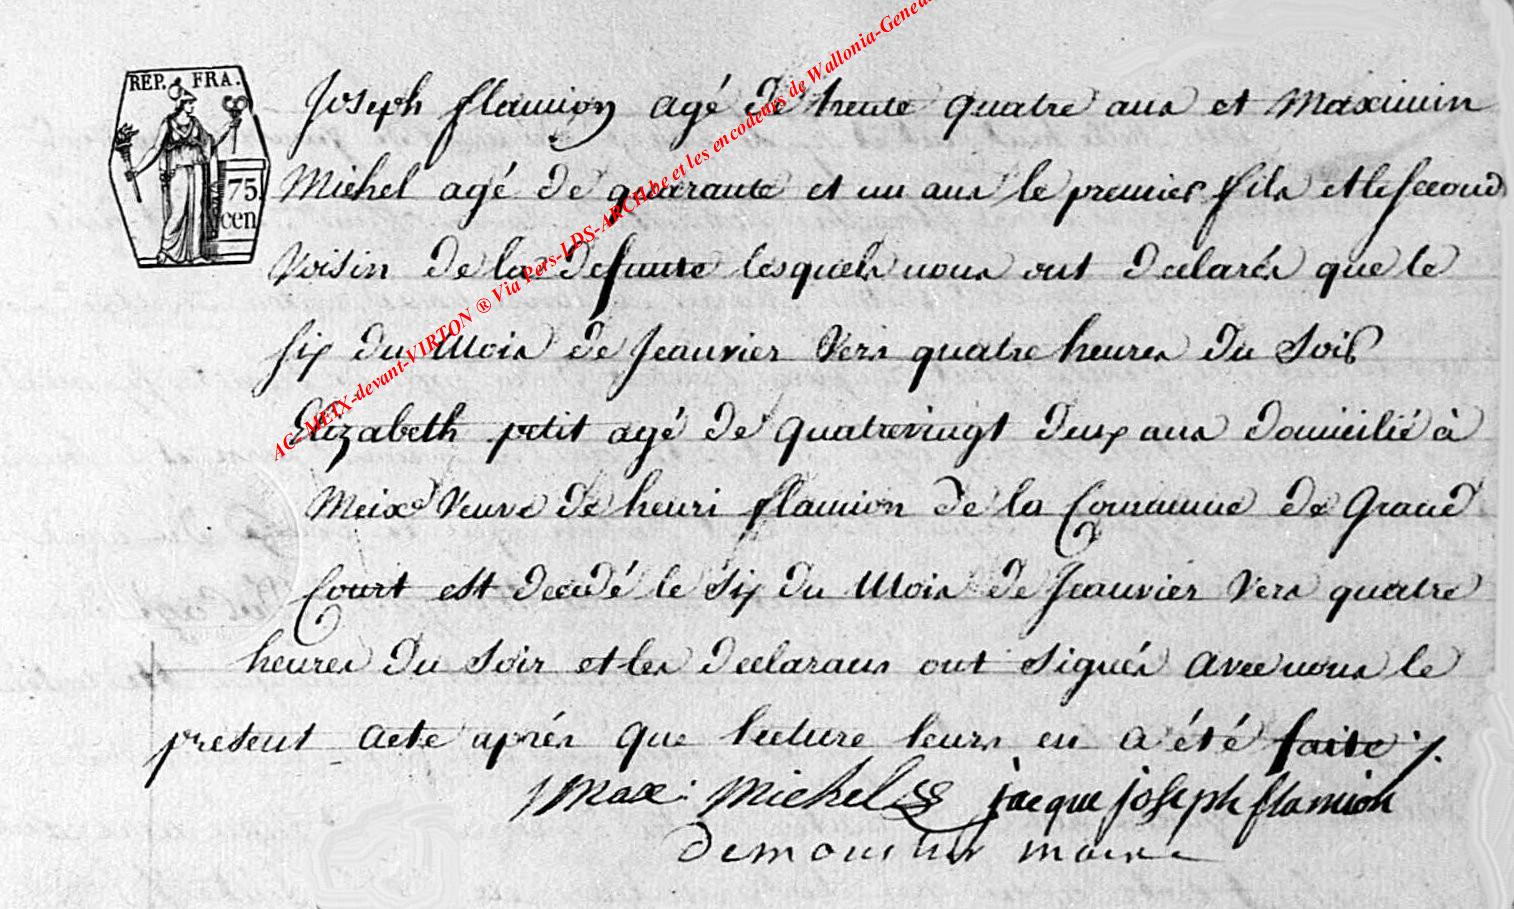 REP. FRA.
75.
cen
AC-MEIX-devant-VIRTON ® Via Pers-LDS-ARCHbe et les encodeurs de Wallonia-Genea
Joseph flamion agé de trente quatre ans et Maximin
Michel agé de quarrante et un ans le premier fils et le second
Voisin de la defunte lesquels nous ont declarés que le
six du Mois de Jeanvier Vers quatre heures du Soir
Elizabeth petit agé de quatrevingt deux ans domicilié à
Meix Veuve de henri flamion de la Commune de Grand
Court est decedé le Six du Mois de Jeanvier Vers quatre
heures du Soir et les declarans ont signés avec nous le
present acte aprés que lecture leurs en a été faite ./.
Max: Michel jacque joseph flamion
maire